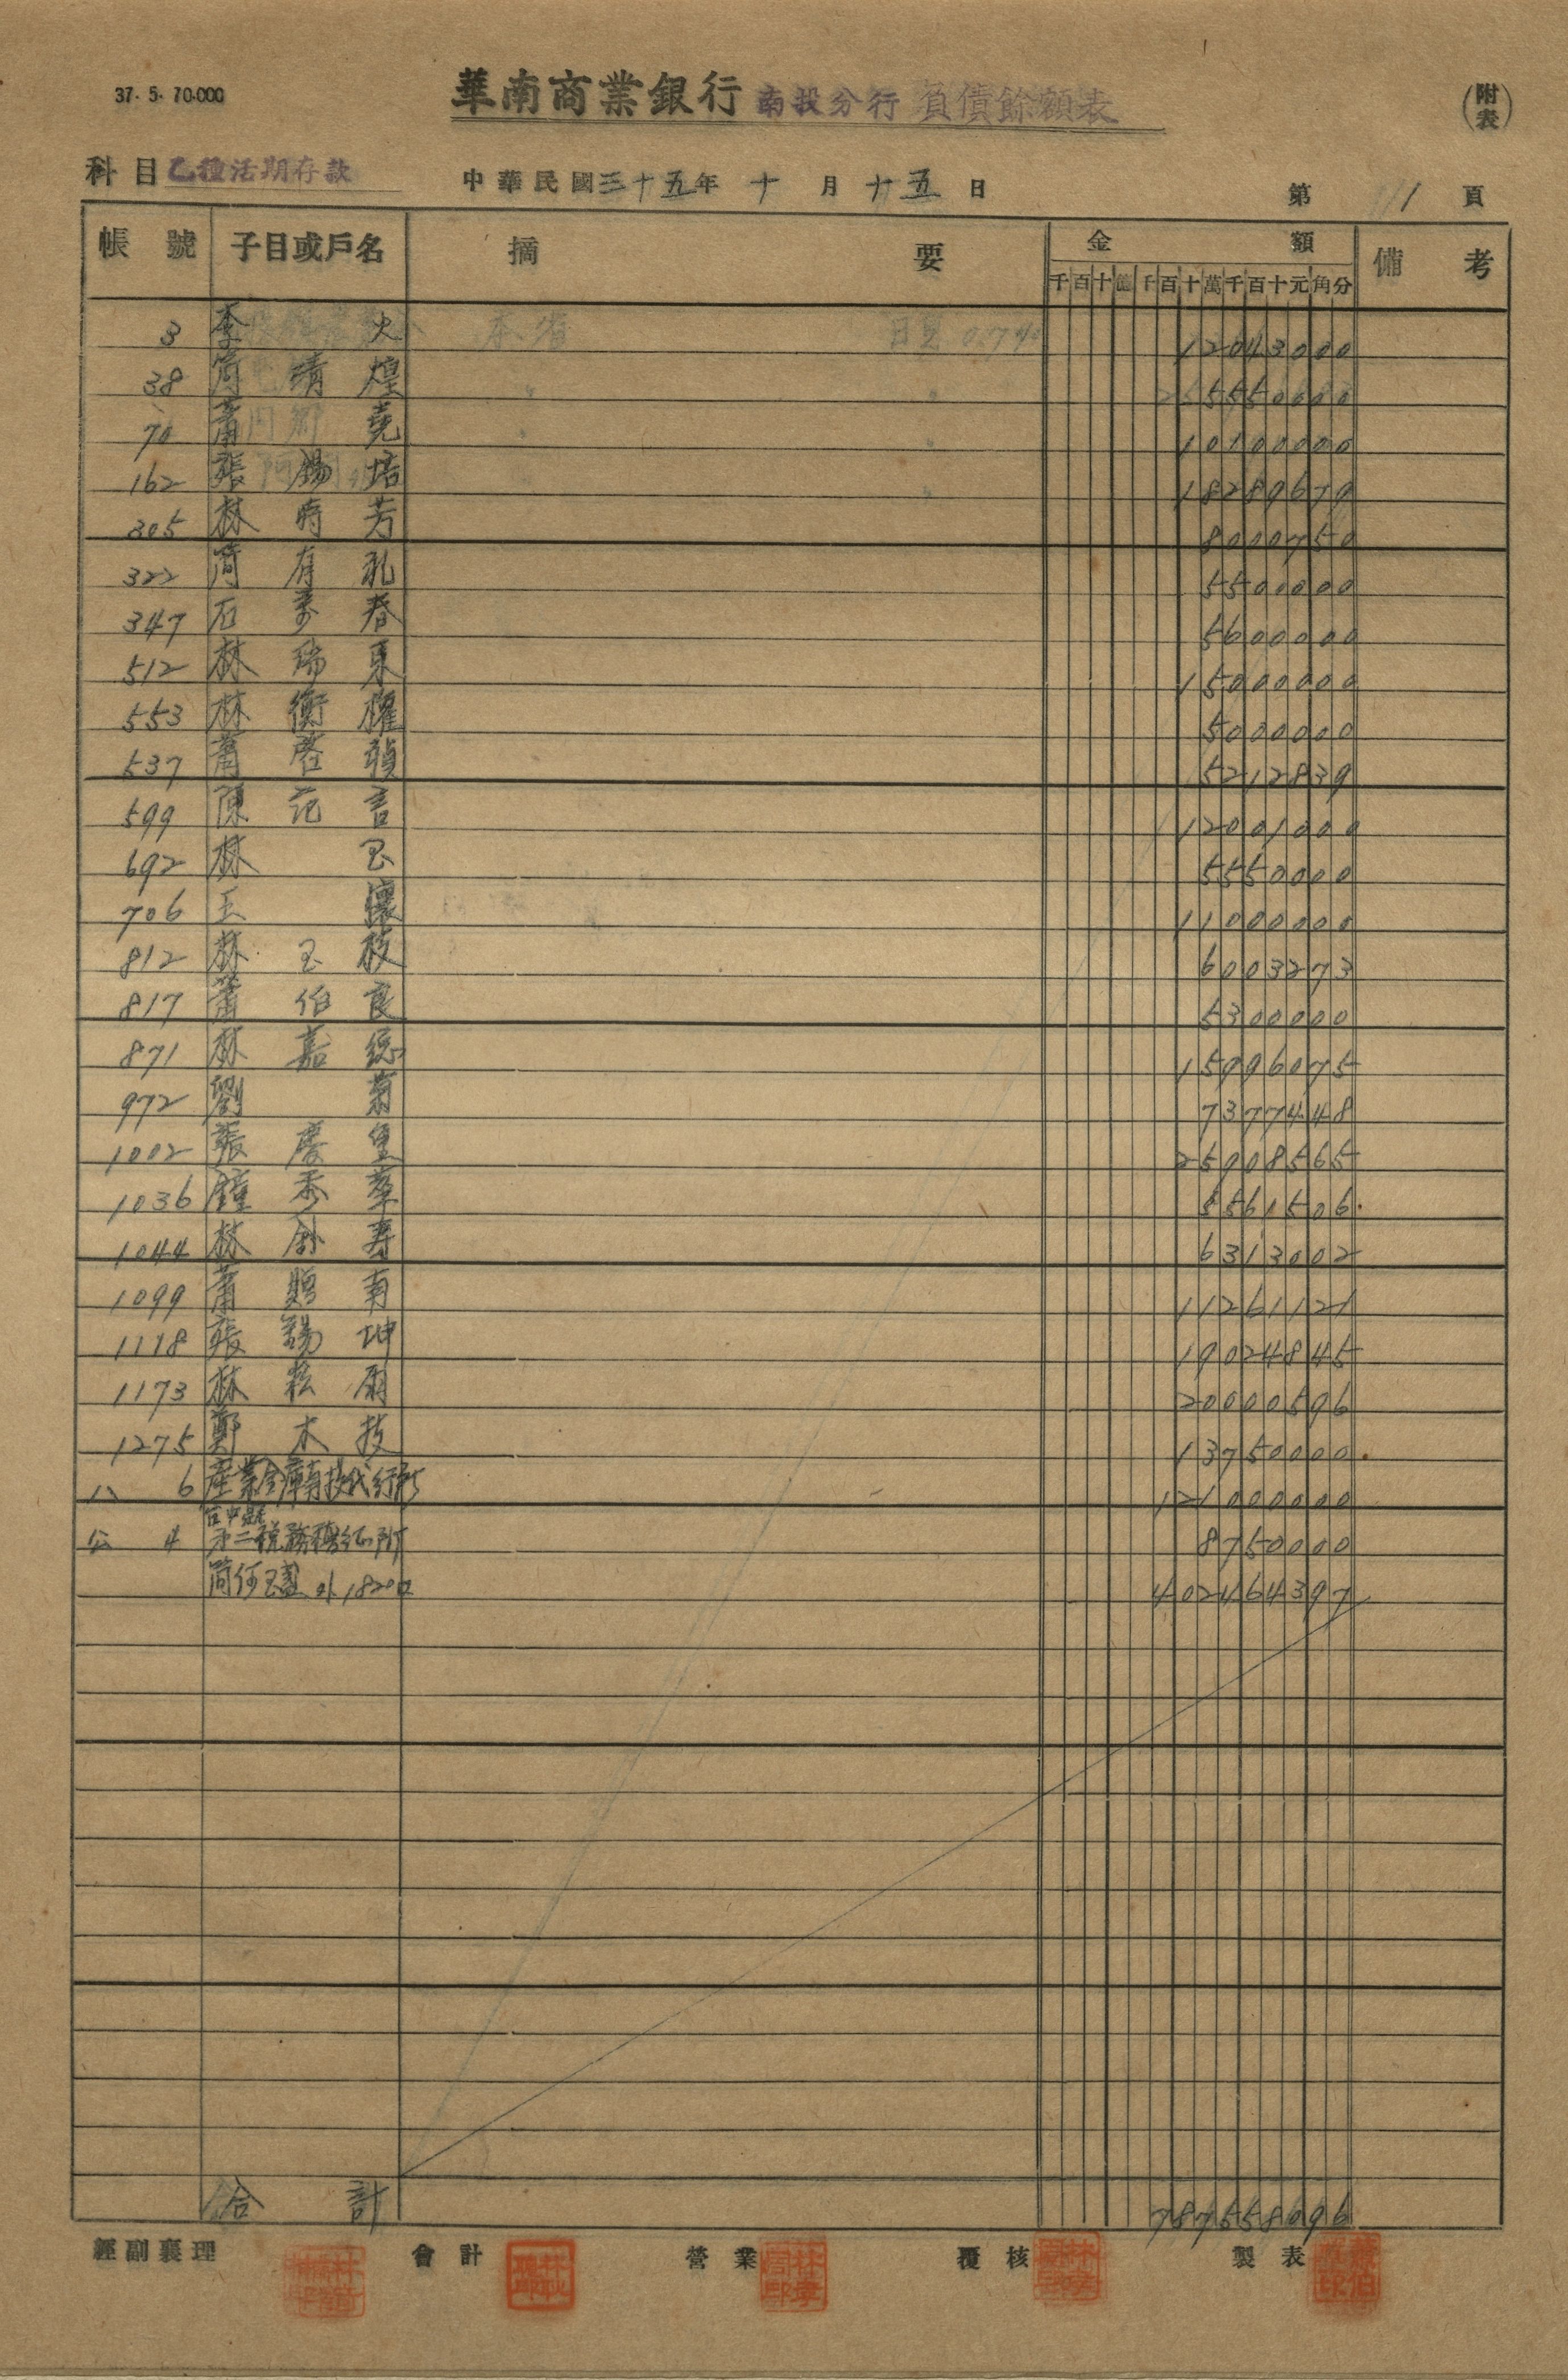 37. 5. 70.000
華南商業銀行 南投分行 負債餘額表
(附表)
科目 乙種活期存款 中華民國三十五年 十 月 十五 日 第 1 頁
帳號 子目或戶名 摘要 金額 備考
千百十億千百十萬千百十元角分
3 李 火 本省 日息 12043000
38 簡靖煌 〃 〃 5550000
70 蕭堯 〃 〃 10100000
162 張錫培 〃 〃 18289679
305 林時芳 8000750
322 簡有孔 5500000
347 石万春 5600000
512 林瑞東 15000000
553 林衡權 5000000
537 蕭啓禎 5212839
599 陳 言 12001000
692 林玉 5550000
706 王懷 11000000
812 林玉枝 6003273
817 蕭伯良 5300000
871 林嘉 15996075
972 劉菊 7377448
1002 張慶 25908565
1036 鐘秀 5561506
1044 林 寿 6313002
1099 蕭 南 11261121
1118 張錫坤 19024845
1173 林松 20000596
1275 鄭木技 13750000
6 產業金庫南投代 121000000
公 4 台中縣
第二稅務 8750000
簡何玉 外1820口 402464397
合計 787558696
經副襄理 會計 營業 覆核 製表